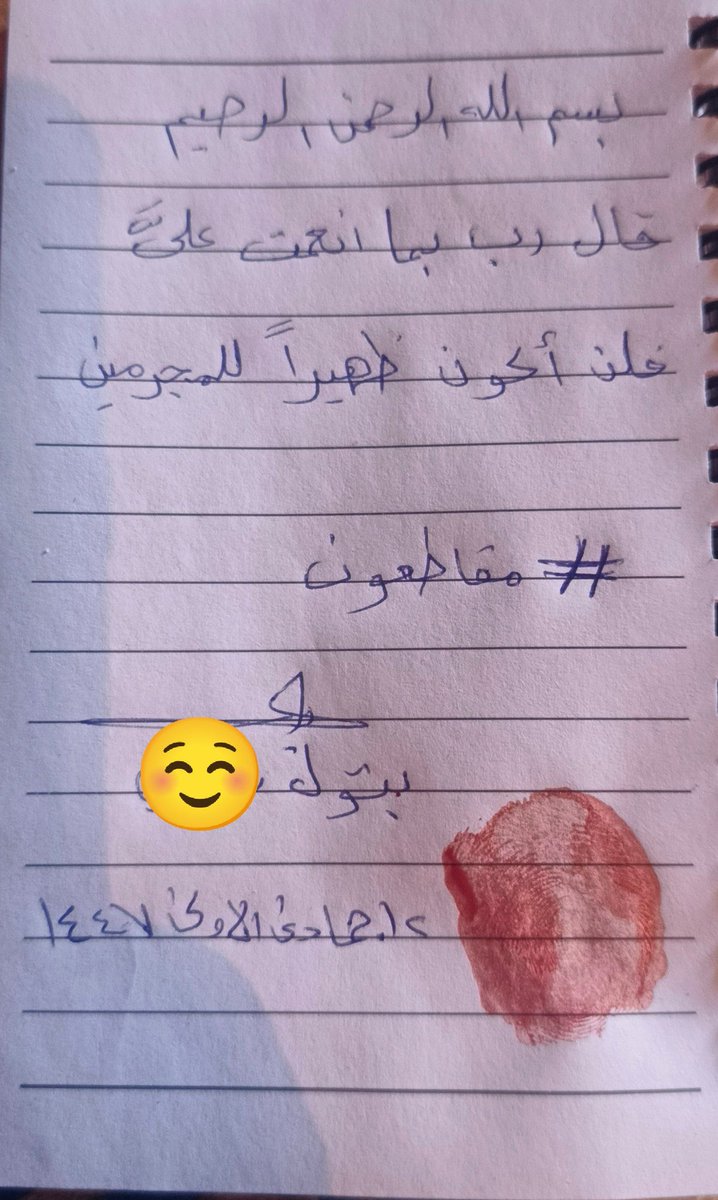 بسم الله الرحمن الرحيم
قال رب بما انعمت عليَّ
فلن أكون ظهيراً للمجرمين
# مقاطعون
بتول
جمادى الاولى ١٤٤٧